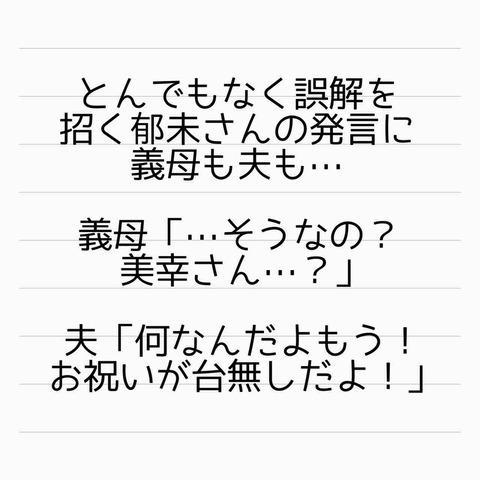 とんでもなく誤解を
招く郁未さんの発言に
義母も夫も…
義母「…そうなの？
美幸さん…？」
夫「何なんだよもう！
お祝いが台無しだよ！」